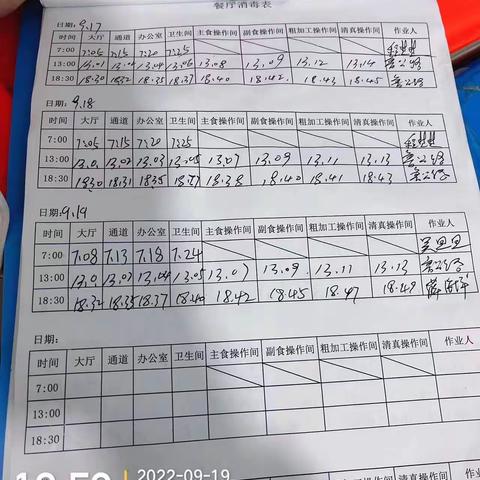 餐厅消毒表
日期: 9.17
时间 大厅 通道 办公室 卫生间 主食操作间 副食操作间 粗加工操作间 清真操作间 作业人
7:00 7:05 7:15 7:20 7:25
13:00 13.01 13.04 13.06 13.08 13.09 13.12 13.14
18:30 18.30 18.32 18.35 18.37 18.40 18.42 18.43 18.45
日期: 9.18
时间 大厅 通道 办公室 卫生间 主食操作间 副食操作间 粗加工操作间 清真操作间 作业人
7:00 7:05 7:15 7:20 7:25
13:00 13.0 13.02 13.03 13.05 13.07 13.09 13.11 13.13
18:30 1830 18.31 18.35 18.37 18.38 18.40 18.41 18.43
日期: 9.19
时间 大厅 通道 办公室 卫生间 主食操作间 副食操作间 粗加工操作间 清真操作间 作业人
7:00 7.08 7.13 7.18 7.24
13:00 13.0 13.03 13.04 13.05 13.07 13.09 13.11 13.13
18:30 18.32 18.35 18.37 18.40 18.42 18.45 18.47 18.49
日期:
时间 大厅 通道 办公室 卫生间 主食操作间 副食操作间 粗加工操作间 清真操作间 作业人
7:00
13:00
18:30
2022-09-19
操作间 粗加工操作间 清真操作间 作业人